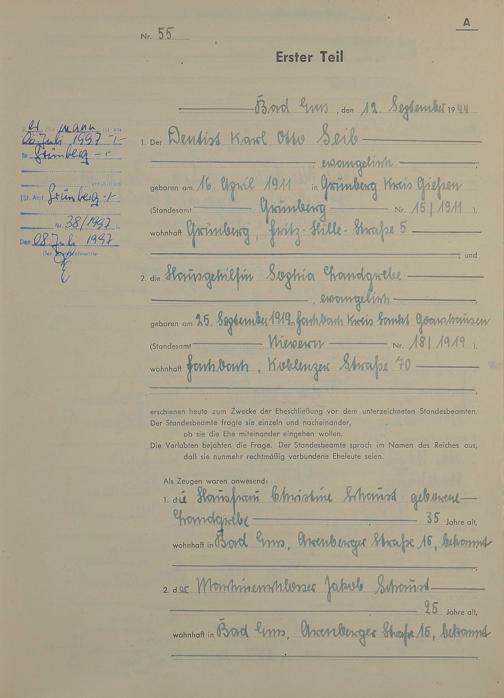 A
Nr. 55
Erster Teil
Bad Ems, den 12. September 1944
1. Der Dentist Karl Otto Seib
evangelisch
geboren am 16. April 1911 in Grünberg Kreis Gießen
(Standesamt Grünberg Nr. 15/1911),
wohnhaft Grünberg, Fritz-Hille-Straße 5
und
2. die Hausgehilfin Sophia Landgrebe
evangelisch
geboren am 25. September 1919 Fachbach Kreis Sankt Goarshausen
(Standesamt Nievern Nr. 18/1919),
wohnhaft Fachbach, Koblenzer Straße 70
erschienen heute zum Zwecke der Eheschließung vor dem unterzeichneten Standesbeamten.
Der Standesbeamte fragte sie einzeln und nacheinander,
ob sie die Ehe miteinander eingehen wollen.
Die Verlobten bejahten die Frage. Der Standesbeamte sprach im Namen des Reiches aus,
daß sie nunmehr rechtmäßig verbundene Eheleute seien.
Als Zeugen waren anwesend:
1. die Hausfrau Christine Schaust geborene
Landgrebe 35 Jahre alt,
wohnhaft in Bad Ems, Arenberger Straße 15, bekannt
2. der Maschinenschlosser Jakob Schaust
25 Jahre alt,
wohnhaft in Bad Ems, Arenberger Straße 15, bekannt
mann
06. Juli 1997
Grünberg
St. Amt Grünberg
Nr. 38/1997
Den 08. Juli 1997